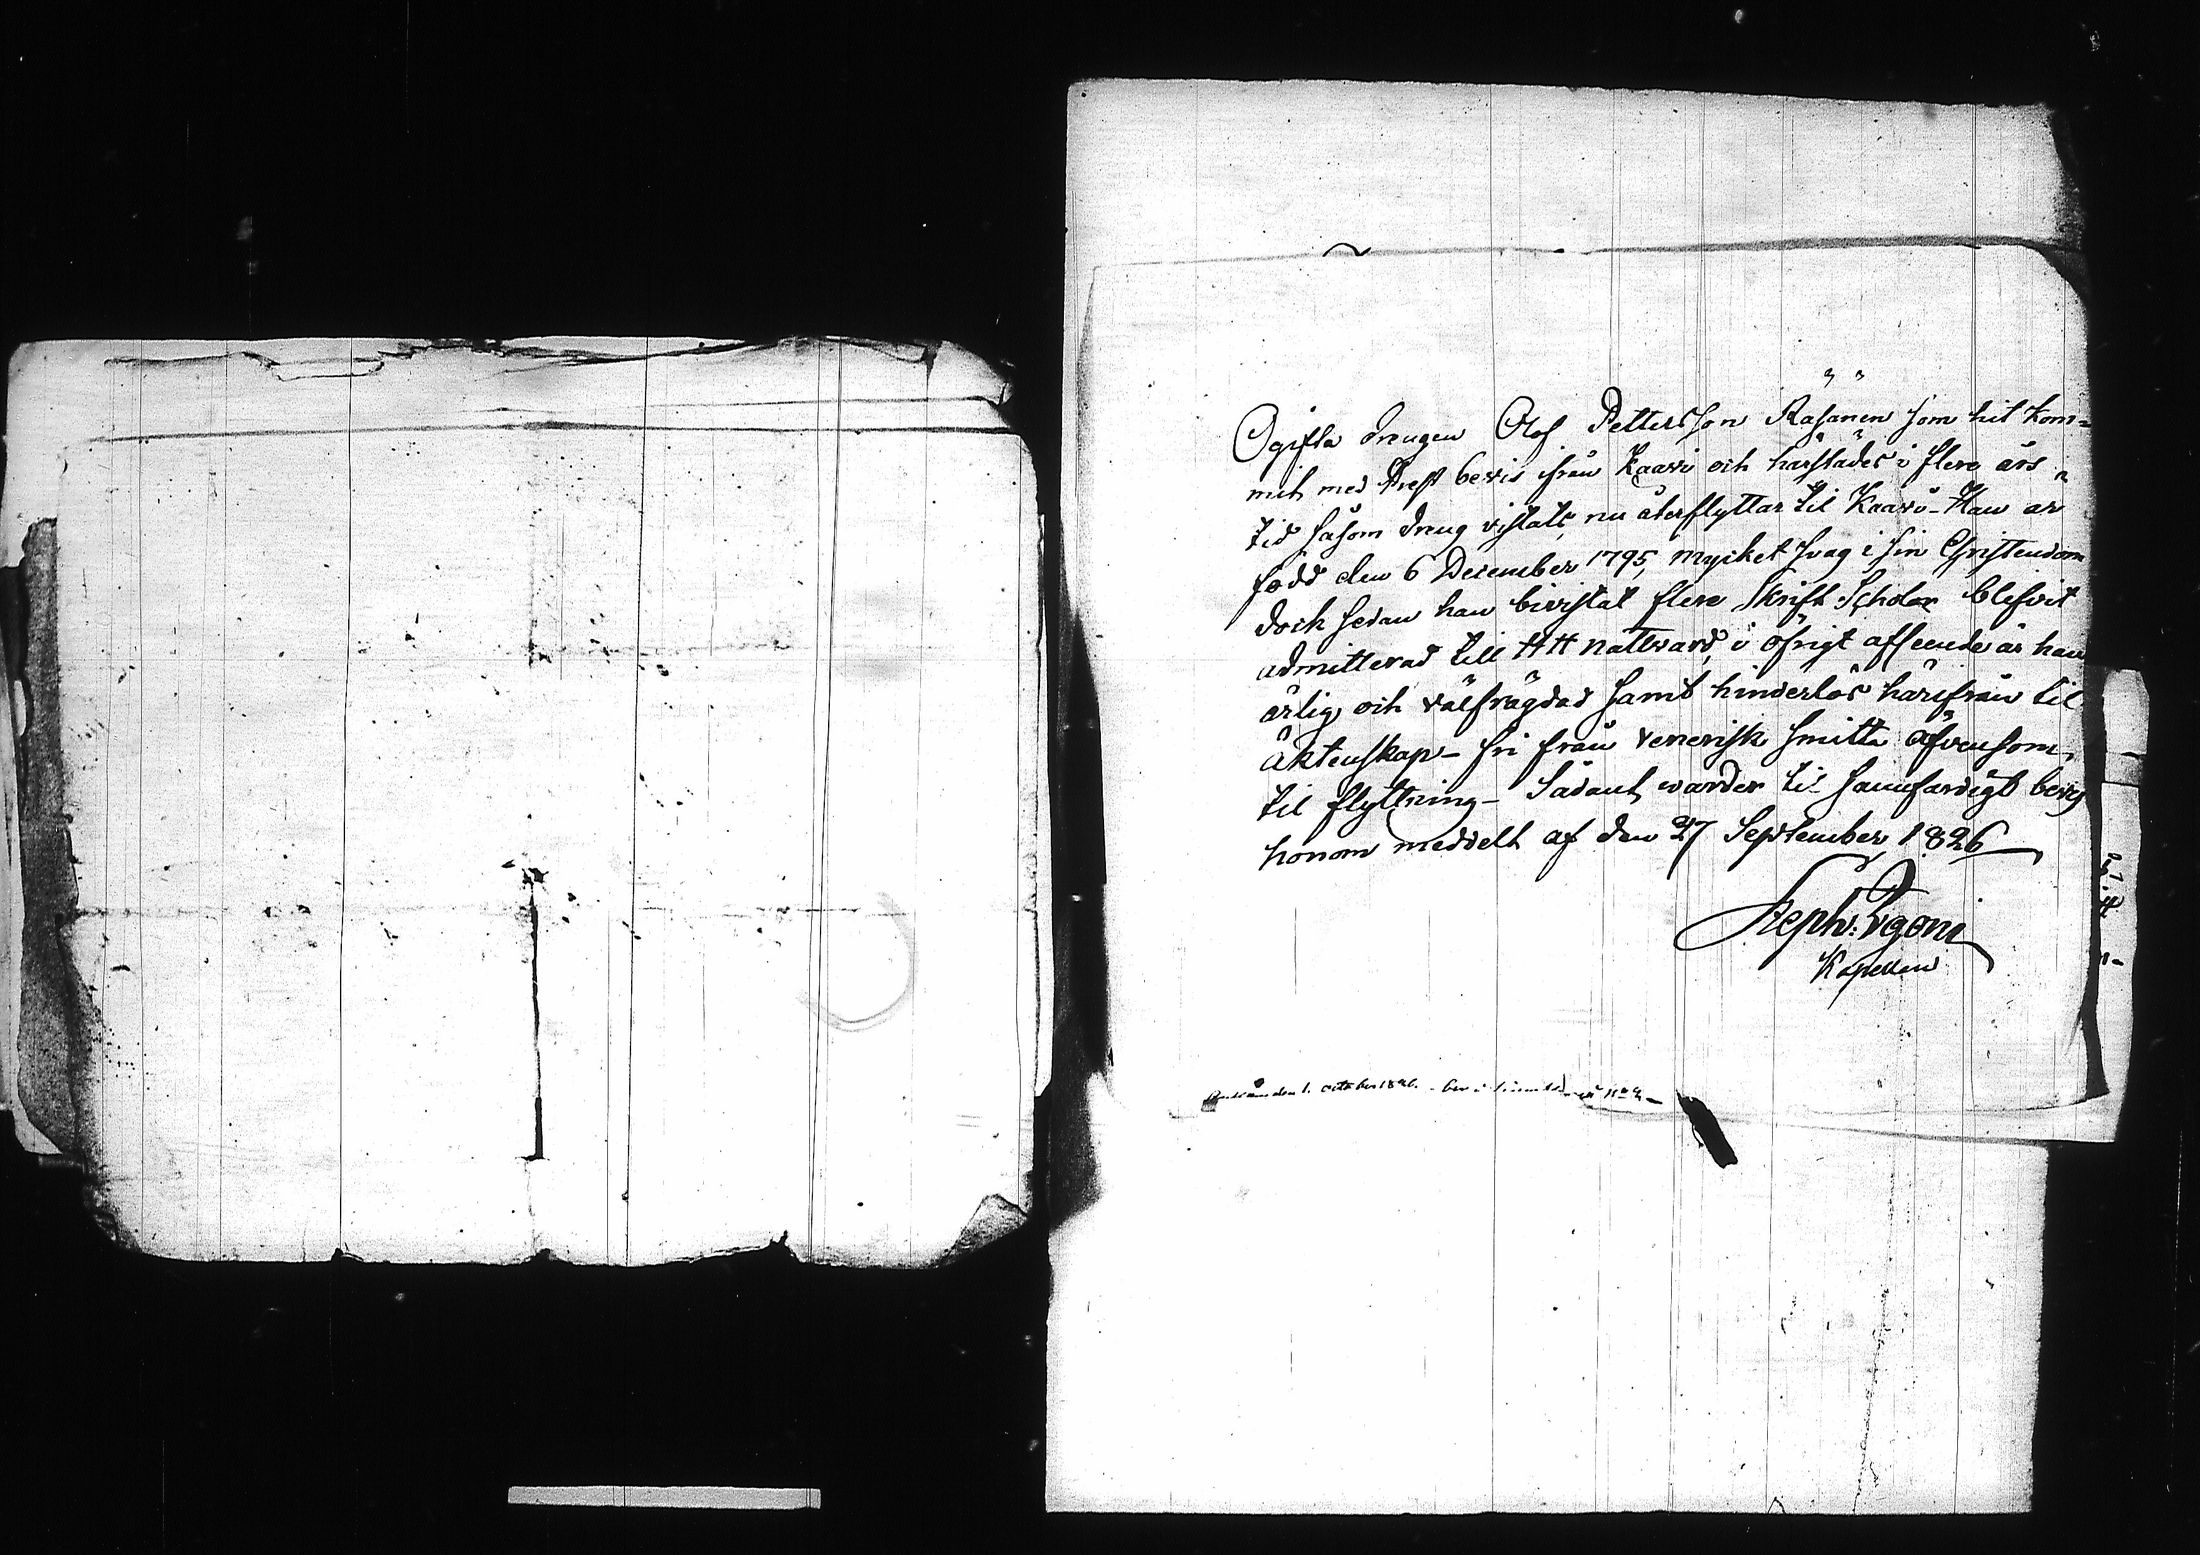 Ogifta drengen Olof Pettersson Räsänen som hit kom=
mit med Prest bevis ifrån Kaavi och härstädes i flere års
tid såsom dreng vistats, nu återflyttar til Kaavi - Han är
född den 6 December 1795, mycket svag i sin Christendom
doch sedan han bivistat flere Skrift Scholor blefvit
admitterad till HH nattward, i öfrigt afseende är han
ärlig och välfrägdad samt hinderlös härifrån til
Äktenskap - fri från venerisk smitta äfvensom
til flyttning - Sådant warder til sannfärdigt bevis
honom meddelt af den 27 September 1826
Steph:
Kapellan
den 1. october 1826. - No 2 -